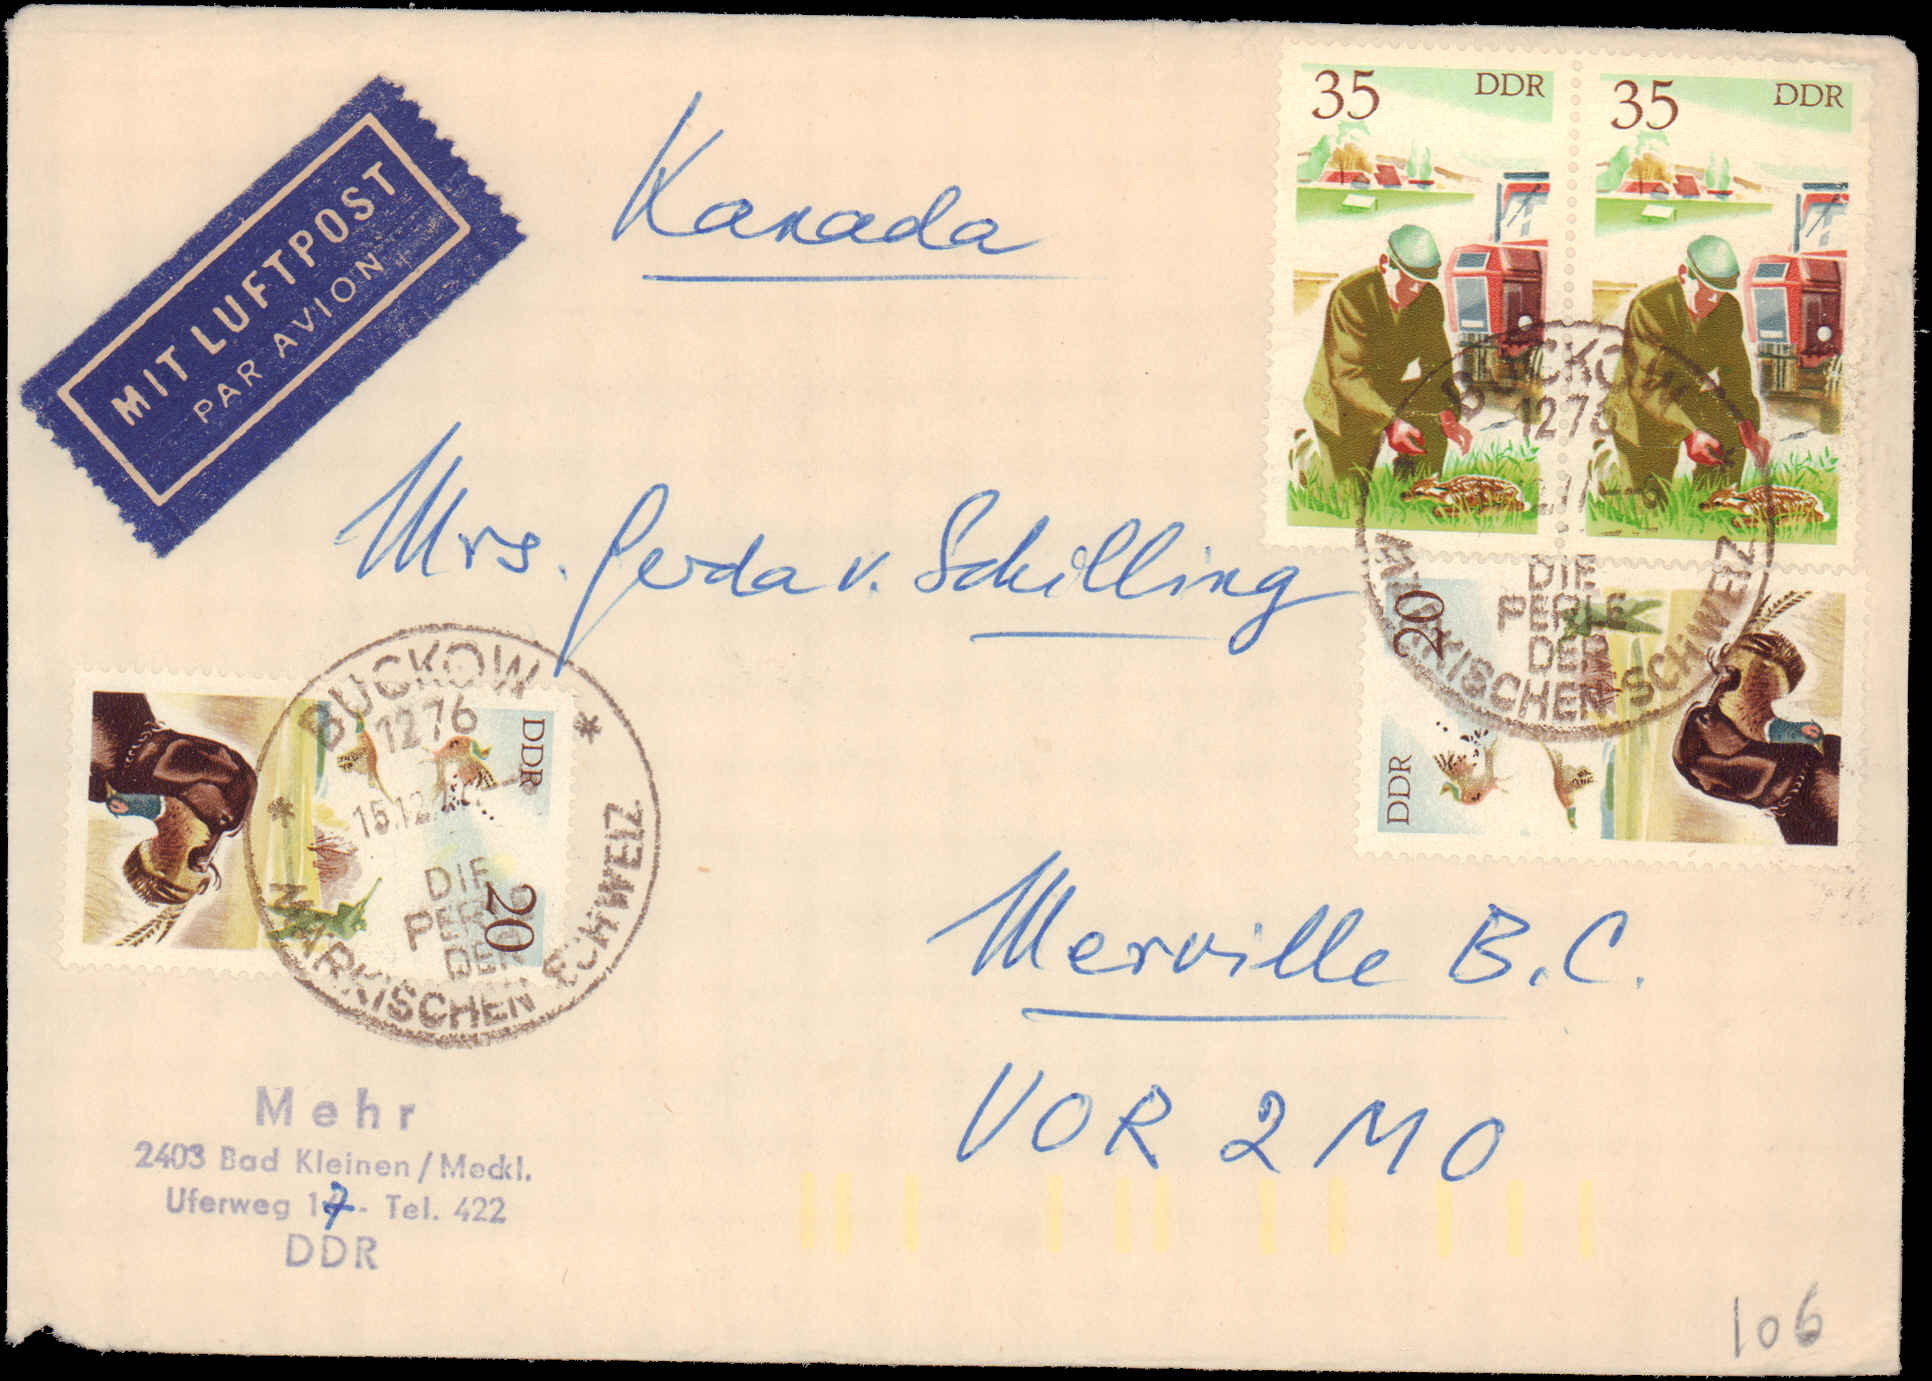 MIT LUFTPOST
PAR AVION
Kanada
35 DDR
35 DDR
Mrs. Gerda v. Schilling
BUCKOW
1276
DIE
PERLE
DER
MÄRKISCHEN SCHWEIZ
20
DDR
BUCKOW
1276
15.12.
DIE
PERLE
DER
MÄRKISCHEN SCHWEIZ
DDR
20
Merville B.C.
VOR 2MO
Mehr
2403 Bad Kleinen/Meckl.
Uferweg 17 - Tel. 422
DDR
106